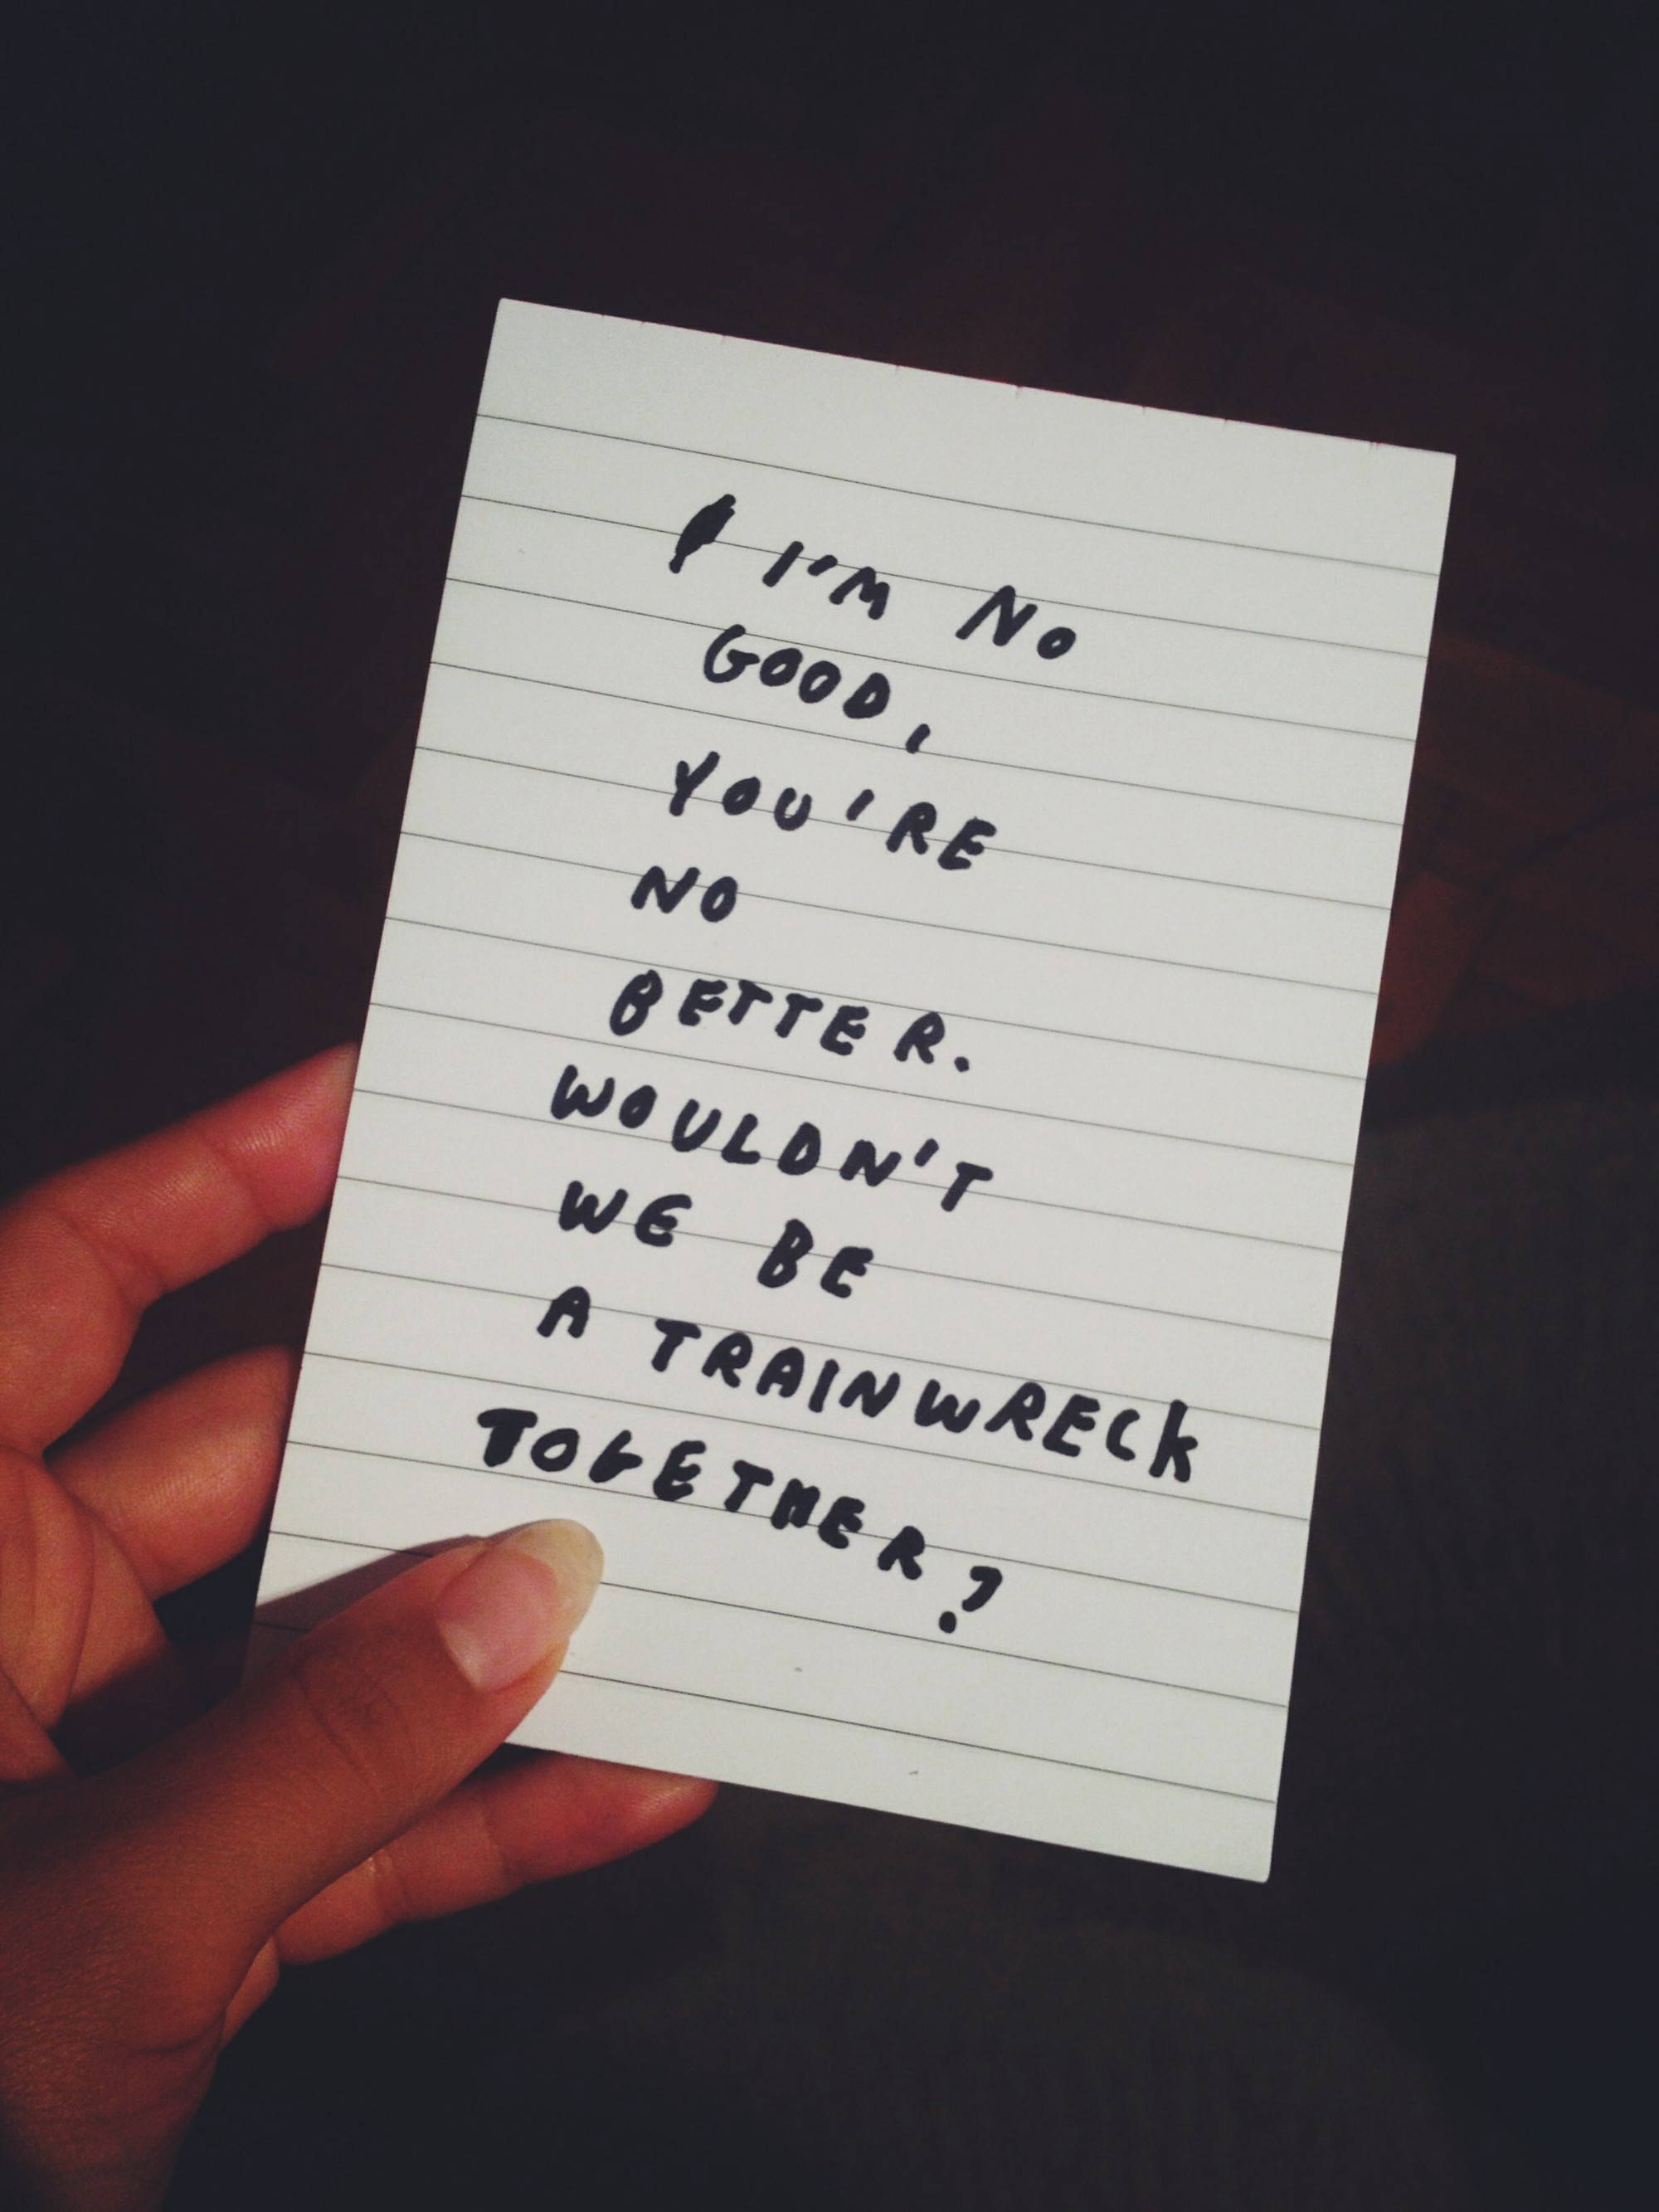 I'M NO
GOOD,
YOU'RE
NO
BETTER.
WOULDN'T
WE BE
A TRAINWRECK
TOGETHER?